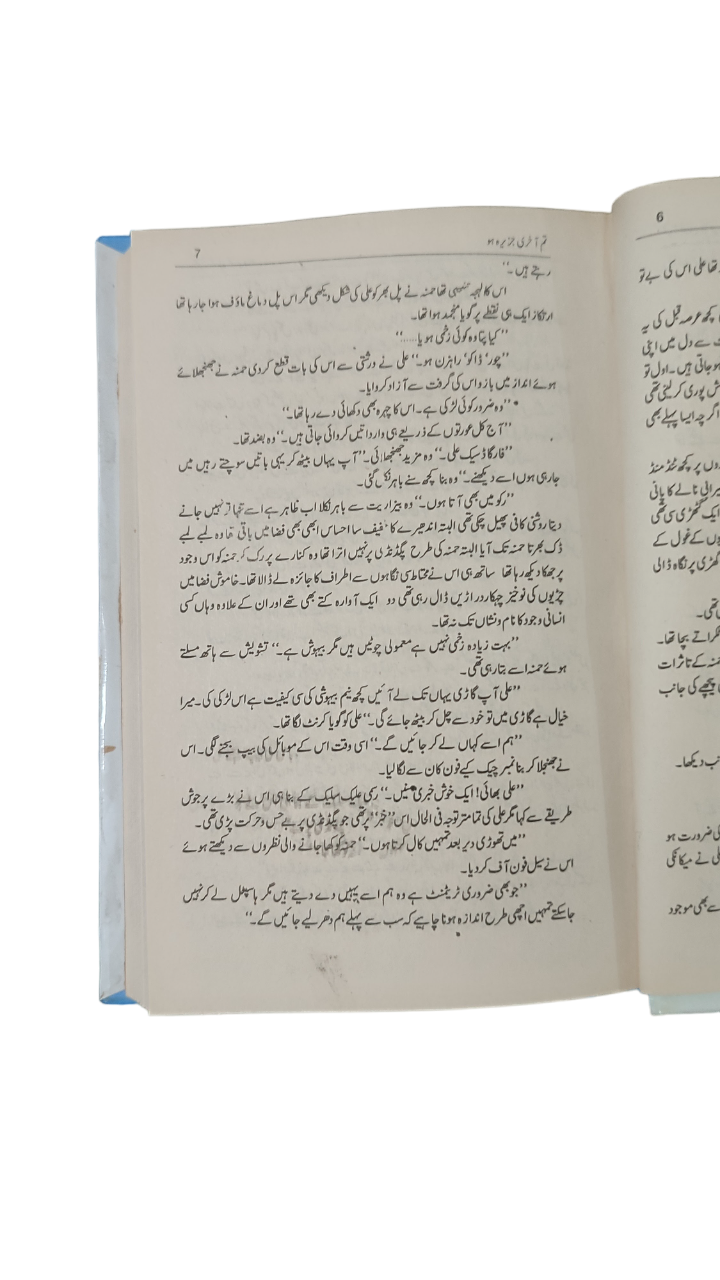 7
تم آخری جزیرہ ہو
رہتے ہیں۔‘‘
اس کا لہجہ تنبیہی تھا حمنہ نے پل بھر کو علی کی شکل دیکھی مگر اس پل دماغ ماؤف ہوا جا رہا تھا
ارتکاز ایک ہی نقطے پر گویا منجمد ہوا تھا۔
’’کیا پتا وہ کوئی زخمی ہو یا.....‘‘
’’چور‘ ڈاکو‘ راہزن ہو۔‘‘ علی نے درشتی سے اس کی بات قطع کر دی حمنہ نے جھنجھلائے
ہوئے انداز میں بازو اس کی گرفت سے آزاد کروایا۔
’’وہ ضرور کوئی لڑکی ہے۔ اس کا چہرہ بھی دکھائی دے رہا تھا۔‘‘
’’آج کل عورتوں کے ذریعے ہی وارداتیں کروائی جاتی ہیں۔‘‘ وہ بضد تھا۔
’’فار گاڈ سیک علی۔‘‘ وہ مزید جھنجھلائی۔ ’’آپ یہاں بیٹھ کر یہی باتیں سوچتے رہیں میں
جا رہی ہوں اسے دیکھنے۔‘‘ وہ بنا کچھ سنے باہر نکل گئی۔
’’رکو میں بھی آتا ہوں۔‘‘ وہ بیزاریت سے باہر نکلا اب ظاہر ہے اسے تنہا تو نہیں جانے
دیتا روشنی کافی پھیل چکی تھی البتہ اندھیرے کا خفیف سا احساس ابھی بھی فضا میں باقی تھا وہ لمبے لمبے
ڈگ بھرتا حمنہ تک آیا البتہ حمنہ کی طرح پگڈنڈی پر نہیں اترا تھا وہ کنارے پر رک کر حمنہ کو اس وجود
پر جھکا دیکھ رہا تھا ساتھ ہی اس نے محتاط سی نگاہوں سے اطراف کا جائزہ لے ڈالا تھا۔ خاموش فضا میں
چڑیوں کی نوخیز چہکار دراڑیں ڈال رہی تھی دو ایک آوارہ کتے بھی تھے اور ان کے علاوہ وہاں کسی
انسانی وجود کا نام و نشاں تک نہ تھا۔
’’بہت زیادہ زخمی نہیں ہے معمولی چوٹیں ہیں مگر بیہوش ہے۔‘‘ تشویش سے ہاتھ مسلتے
ہوئے حمنہ اسے بتا رہی تھی۔
’’علی آپ گاڑی یہاں تک لے آئیں کچھ نیم بیہوشی کی سی کیفیت ہے اس لڑکی کی۔ میرا
خیال ہے گاڑی میں تو خود سے چل کر بیٹھ جائے گی۔‘‘ علی کو گویا کرنٹ لگا تھا۔
’’ہم اسے کہاں لے کر جائیں گے۔‘‘ اسی وقت اس کے موبائل کی بیپ بجنے لگی۔ اس
نے جھنجلا کر بنا نمبر چیک کیے فون کان سے لگا لیا۔
’’علی بھائی! ایک خوش خبری سنیں۔‘‘ رسمی علیک سلیک کے بنا ہی اس نے بڑے پر جوش
طریقے سے کہا مگر علی کی تمام تر توجہ فی الحال اس ’’خبر‘‘ پر تھی جو پگڈنڈی پر بے حس و حرکت پڑی تھی۔
’’میں تھوڑی دیر بعد تمہیں کال کرتا ہوں۔‘‘ حمنہ کو کھا جانے والی نظروں سے دیکھتے ہوئے
اس نے سیل فون آف کر دیا۔
’’جو بھی ضروری ٹریٹمنٹ ہے وہ ہم اسے یہیں دے دیتے ہیں مگر ہاسپٹل لے کر نہیں
جا سکتے تمہیں اچھی طرح اندازہ ہونا چاہیے کہ سب سے پہلے ہم دھر لیے جائیں گے۔‘‘
6
تھا علی اس کی بے تو
کچھ عرصہ قبل کی یہ
سے دل میں اپنی
ہو جاتی ہیں۔ اول تو
پوری کر لیتی تھی
اگرچہ ایسا پہلے بھی
پر کچھ ٹنڈ منڈ
نالے کا پانی
ایک گٹھڑی سی تھی
کے غول کے
پر نگاہ ڈالی
تھی۔
بچا تھا۔
کے تاثرات
پیچھے کی جانب
دیکھا۔
کی ضرورت ہو
نے میکانکی
سے بھی موجود